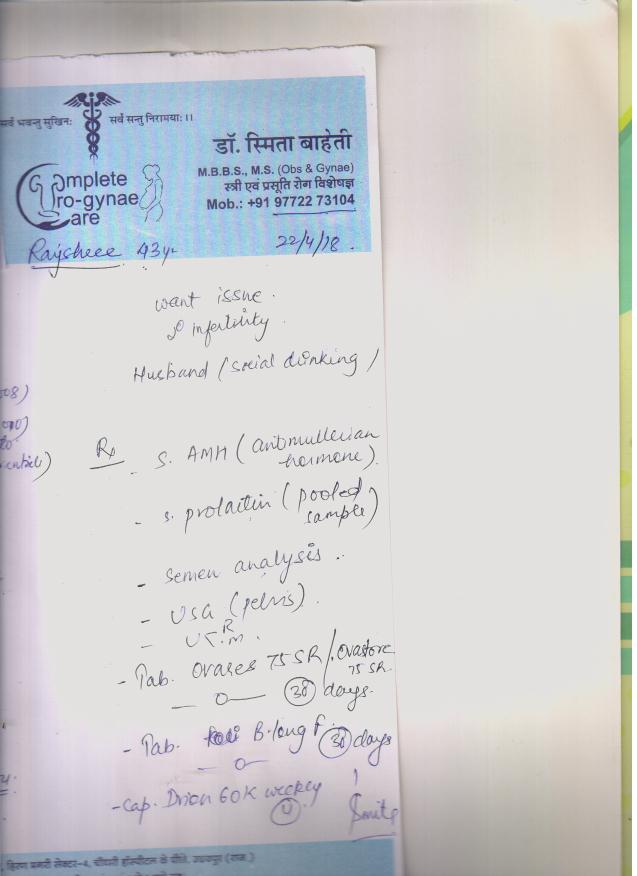 सर्वे भवन्तु सुखिनः सर्वे सन्तु निरामयाः ।।
डॉ. स्मिता बाहेती
M.B.B.S., M.S. (Obs & Gynae)
स्त्री एवं प्रसूति रोग विशेषज्ञ
Mob.: +91 97722 73104
Complete
Uro-gynae
Care
43y
22/4/18.
want issue.
2° infertility.
Husband (social drinking)
08)
Rx
- S. AMH (antimullerian
hormone).
- S. prolactin (pooled
sample)
- Semen analysis ..
- USG (pelvis).
- U R/M.
- Tab. Ovares 75 SR / Ovastore
75 SR.
—o— (30) days.
- Tab. B-long F. (30) days
—o—
- Cap. Drion 60K weekly
(4).
सेक्टर-4,
हॉस्पीटल के पीछे, उदयपुर (राज.)